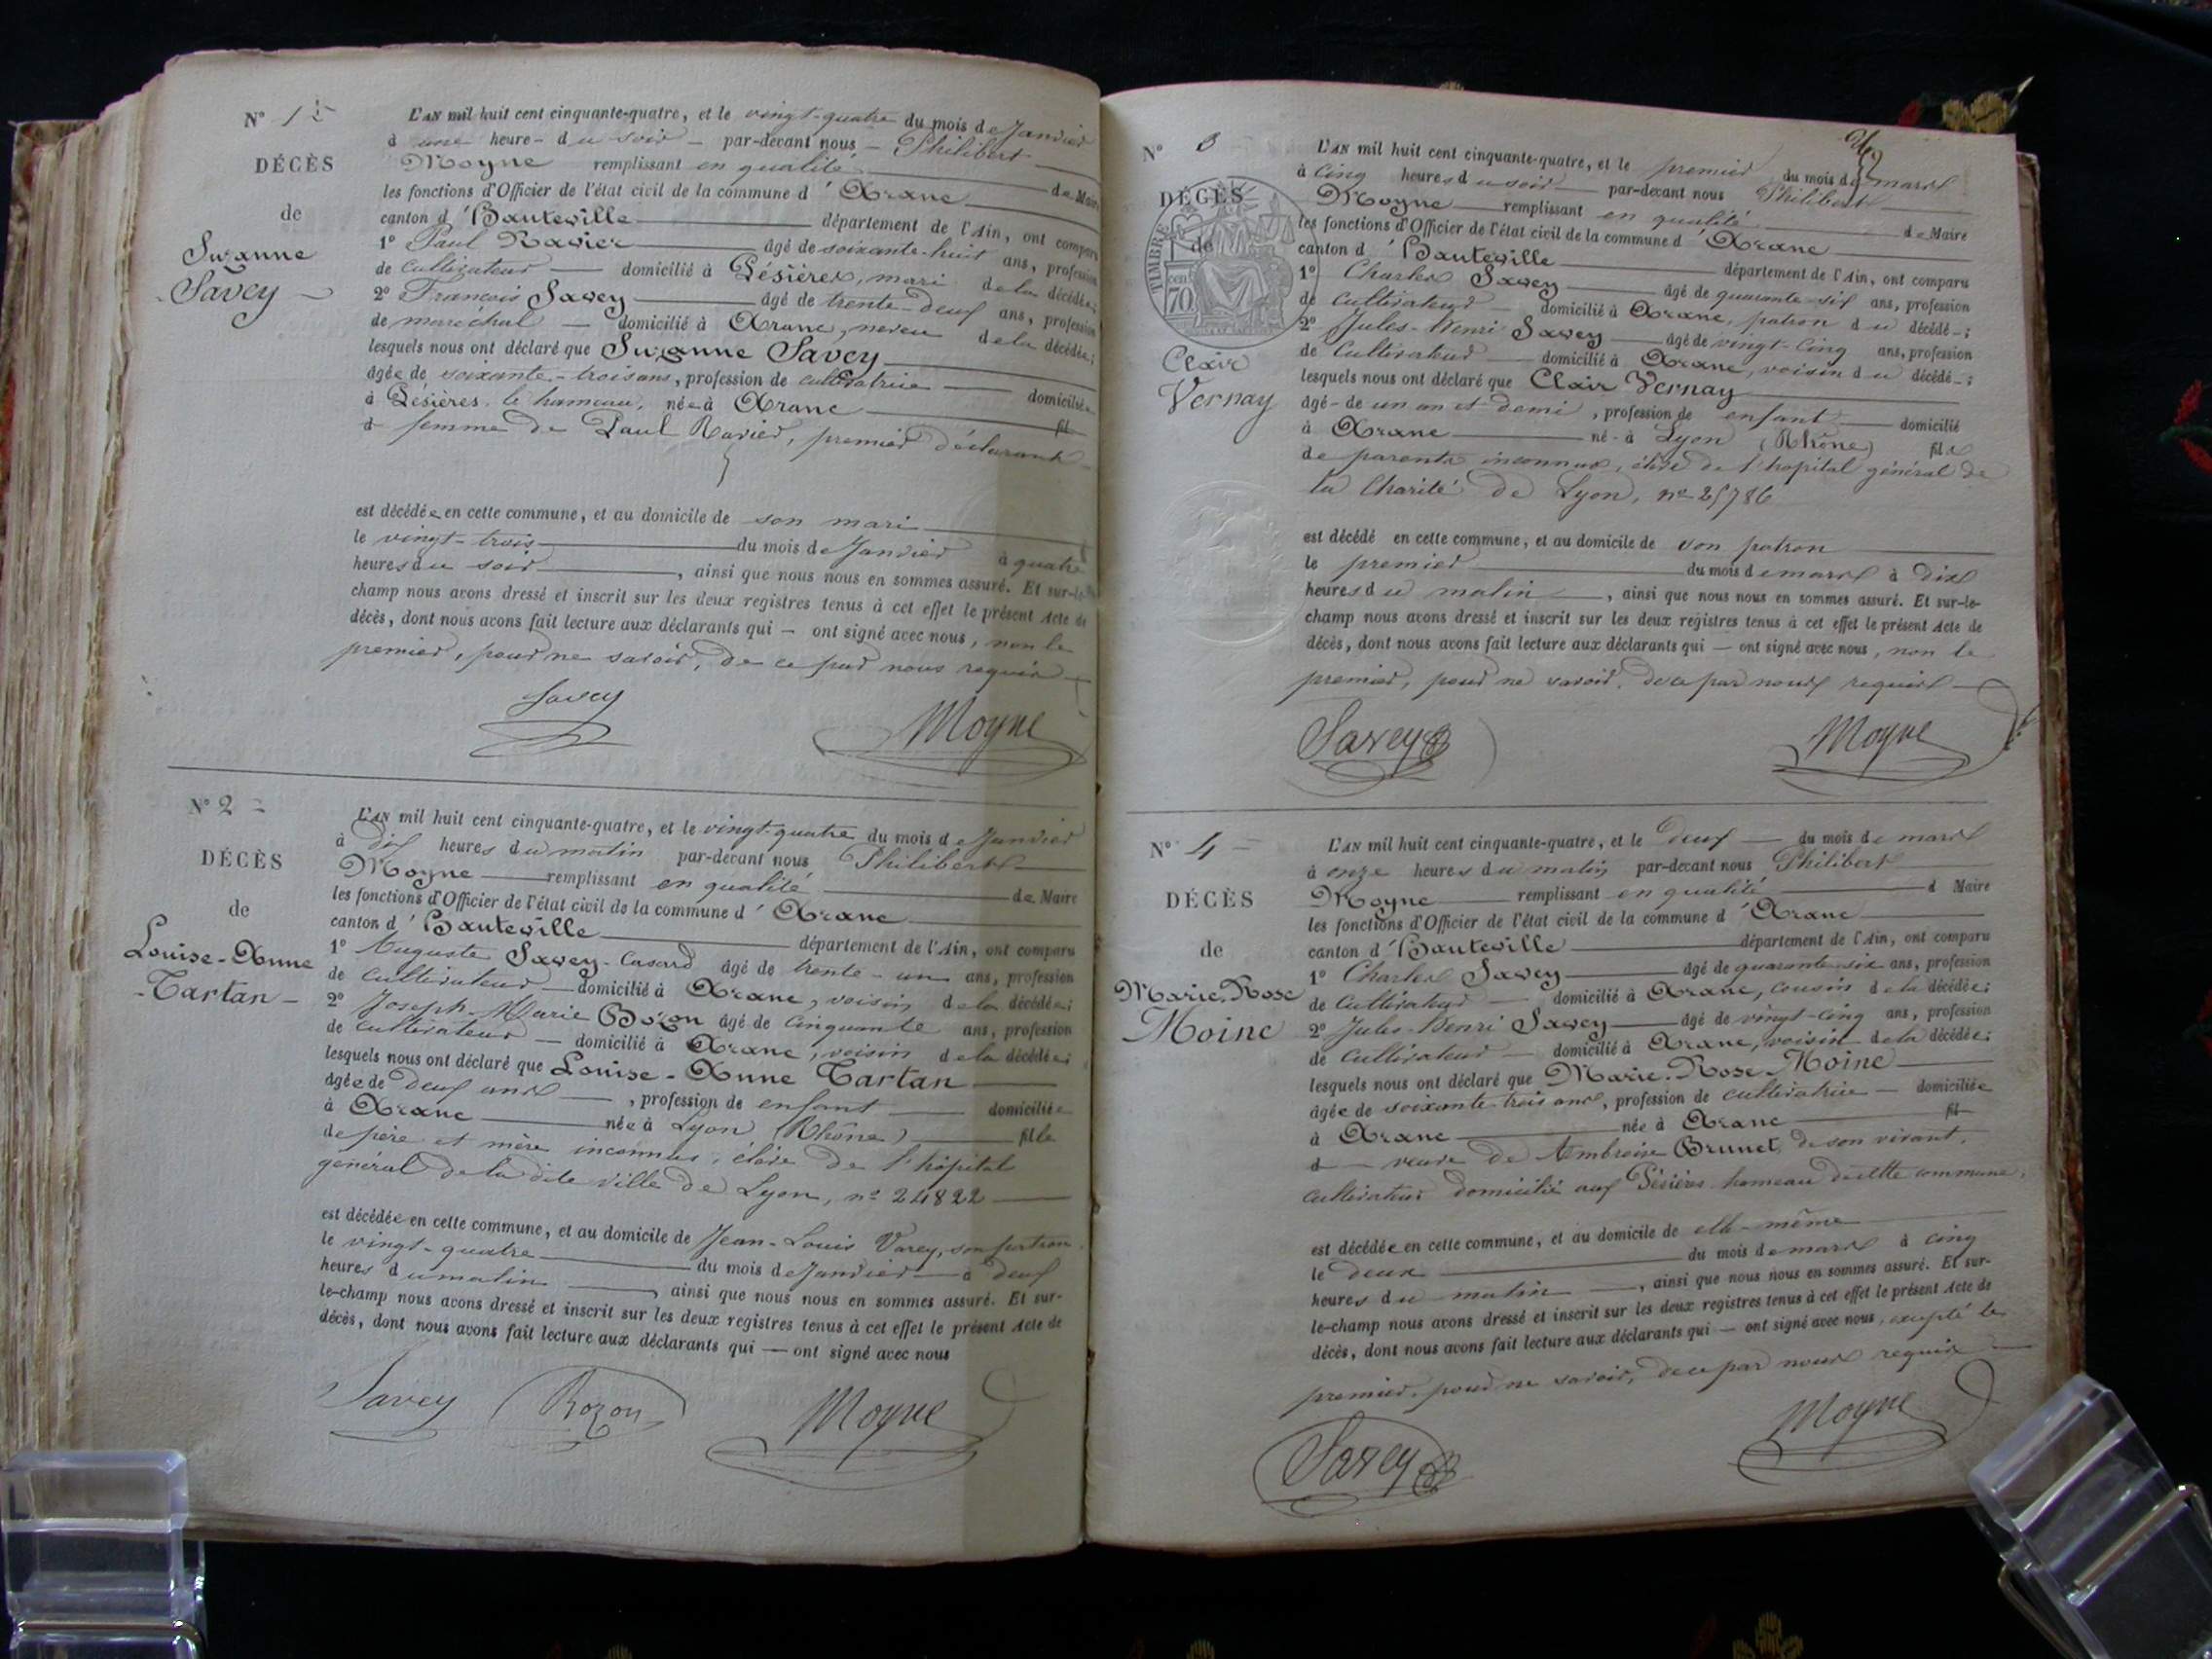 N° 1
DÉCÈS
de
Suzanne
Savey
L'AN mil huit cent cinquante-quatre, et le vingt-quatre du mois de Janvier
à une heure du soir par-devant nous Philibert
Moyne remplissant en qualité de Maire
les fonctions d'Officier de l'état civil de la commune d'Aranc
canton d'Hauteville département de l'Ain, ont comparu
1° Paul Ravier âgé de soixante-huit ans, profession
de cultivateur domicilié à Pésières, mari de la décédée;
2° François Savey âgé de trente-deux ans, profession
de maréchal domicilié à Aranc, neveu de la décédée;
lesquels nous ont déclaré que Suzanne Savey
âgée de soixante-trois ans, profession de cultivatrice domiciliée
à Pésières le hameau, née à Aranc fil
d femme de Paul Ravier, premier déclarant
est décédée en cette commune, et au domicile de son mari
le vingt-trois du mois de Janvier à quatre
heures du soir, ainsi que nous nous en sommes assuré. Et sur-le-
champ nous avons dressé et inscrit sur les deux registres tenus à cet effet le présent Acte de
décès, dont nous avons fait lecture aux déclarants qui — ont signé avec nous, non le
premier, pour ne savoir, de ce par nous requis
Savey Moyne
N° 2
DÉCÈS
de
Louise-Anne
Tartan
L'AN mil huit cent cinquante-quatre, et le vingt-quatre du mois de Janvier
à dix heures du matin par-devant nous Philibert
Moyne remplissant en qualité de Maire
les fonctions d'Officier de l'état civil de la commune d'Aranc
canton d'Hauteville département de l'Ain, ont comparu
1° Auguste Savey-Casard âgé de trente-un ans, profession
de cultivateur domicilié à Aranc, voisin de la décédée;
2° Joseph-Marie Bozon âgé de cinquante ans, profession
de cultivateur domicilié à Aranc, voisin de la décédée;
lesquels nous ont déclaré que Louise-Anne Tartan
âgée de deux ans, profession de enfant domiciliée
à Aranc née à Lyon (Rhône) fille
de père et mère inconnus, élève de l'hôpital
général de la dite ville de Lyon, n° 24822
est décédée en cette commune, et au domicile de Jean-Louis Varey, son patron
le vingt-quatre du mois de Janvier à deux
heures du matin, ainsi que nous nous en sommes assuré. Et sur-
le-champ nous avons dressé et inscrit sur les deux registres tenus à cet effet le présent Acte de
décès, dont nous avons fait lecture aux déclarants qui — ont signé avec nous
Savey Bozon Moyne
N° 3
DÉCÈS
de
TIMBRE
70 cent
Clair
Vernay
L'AN mil huit cent cinquante-quatre, et le premier du mois de mars
à cinq heures du soir par-devant nous Philibert
Moyne remplissant en qualité de Maire
les fonctions d'Officier de l'état civil de la commune d'Aranc
canton d'Hauteville département de l'Ain, ont comparu
1° Charles Savey âgé de quarante-six ans, profession
de cultivateur domicilié à Aranc, patron du décédé;
2° Jules-Henri Savey âgé de vingt-cinq ans, profession
de cultivateur domicilié à Aranc, voisin du décédé;
lesquels nous ont déclaré que Clair Vernay
âgé de un an et demi, profession de enfant domicilié
à Aranc né à Lyon (Rhône) fils
de parents inconnus, élève de l'hopital général de
la Charité de Lyon, n° 25786
est décédé en cette commune, et au domicile de son patron
le premier du mois de mars à dix
heures du matin, ainsi que nous nous en sommes assuré. Et sur-le-
champ nous avons dressé et inscrit sur les deux registres tenus à cet effet le présent Acte de
décès, dont nous avons fait lecture aux déclarants qui — ont signé avec nous, non le
premier, pour ne savoir, de ce par nous requis
Savey Moyne
N° 4
DÉCÈS
de
Marie-Rose
Moine
L'AN mil huit cent cinquante-quatre, et le deux du mois de mars
à onze heures du matin par-devant nous Philibert
Moyne remplissant en qualité d Maire
les fonctions d'Officier de l'état civil de la commune d'Aranc
canton d'Hauteville département de l'Ain, ont comparu
1° Charles Savey âgé de quarante-six ans, profession
de cultivateur domicilié à Aranc, cousin de la décédée;
2° Jules-Henri Savey âgé de vingt-cinq ans, profession
de cultivateur domicilié à Aranc, voisin de la décédée;
lesquels nous ont déclaré que Marie-Rose Moine
âgée de soixante-trois ans, profession de cultivatrice domiciliée
à Aranc née à Aranc fil
d veuve de Ambroise Brunet, de son vivant,
cultivateur domicilié aux Pésières hameau de cette commune,
est décédée en cette commune, et au domicile de elle-même
le deux du mois de mars à cinq
heures du matin, ainsi que nous nous en sommes assuré. Et sur-
le-champ nous avons dressé et inscrit sur les deux registres tenus à cet effet le présent Acte de
décès, dont nous avons fait lecture aux déclarants qui — ont signé avec nous, excepté le
premier, pour ne savoir, de ce par nous requis
Savey Moyne